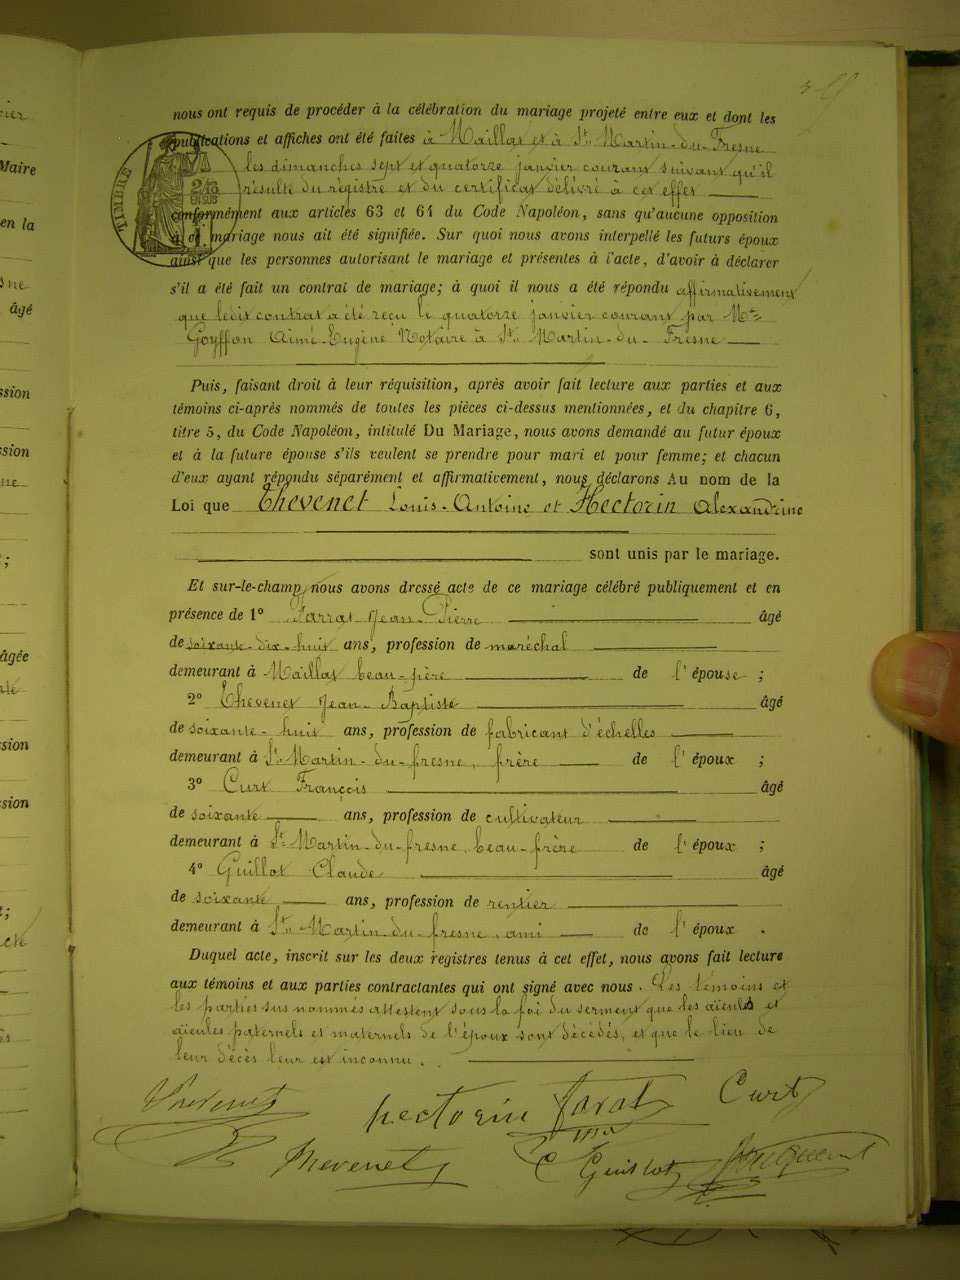 nous ont requis de procéder à la célébration du mariage projeté entre eux et dont les
publications et affiches ont été faites à Maillat et à St. Martin-du-Fresne
les dimanches sept et quatorze janvier courant suivant qu'il
TIMBRE
résulte du registre et du certificat délivré à cet effet
conformément aux articles 63 et 64 du Code Napoléon, sans qu'aucune opposition
à ce mariage nous ait été signifiée. Sur quoi nous avons interpellé les futurs époux
ainsi que les personnes autorisant le mariage et présentes à l'acte, d'avoir à déclarer
s'il a été fait un contrat de mariage; à quoi il nous a été répondu affirmativement
que ledit contrat a été reçu le quatorze janvier courant par Me
Goyffon Aimé-Eugène Notaire à St. Martin-du-Fresne
Puis, faisant droit à leur réquisition, après avoir fait lecture aux parties et aux
témoins ci-après nommés de toutes les pièces ci-dessus mentionnées, et du chapitre 6,
titre 5, du Code Napoléon, intitulé Du Mariage, nous avons demandé au futur époux
et à la future épouse s'ils veulent se prendre pour mari et pour femme; et chacun
d'eux ayant répondu séparément et affirmativement, nous déclarons Au nom de la
Loi que Thevenet Louis-Antoine et Hectorin Alexandrine
sont unis par le mariage.
Et sur-le-champ, nous avons dressé acte de ce mariage célébré publiquement et en
présence de 1° Farrat Jean-Pierre âgé
de soixante-dix-huit ans, profession de maréchal
demeurant à Maillat beau-père de l'épouse ;
2° Thevenet Jean-Baptiste âgé
de soixante-huit ans, profession de fabricant d'échelles
demeurant à St. Martin-du-fresne, frère de l'époux ;
3° Curt François âgé
de soixante ans, profession de cultivateur
demeurant à St. Martin-du-fresne, beau-frère de l'époux ;
4° Guillot Claude âgé
de soixante ans, profession de rentier
demeurant à St. Martin-du-fresne, ami de l'époux .
Duquel acte, inscrit sur les deux registres tenus à cet effet, nous avons fait lecture
aux témoins et aux parties contractantes qui ont signé avec nous. Les témoins et
les parties sus nommés attestent sous la foi du serment que les aïeuls et
aïeules paternels et maternels de l'époux sont décédés, et que le lieu de
leur décès leur est inconnu.
Thevenet hectorin farat Curt
Thevenet C Guillot